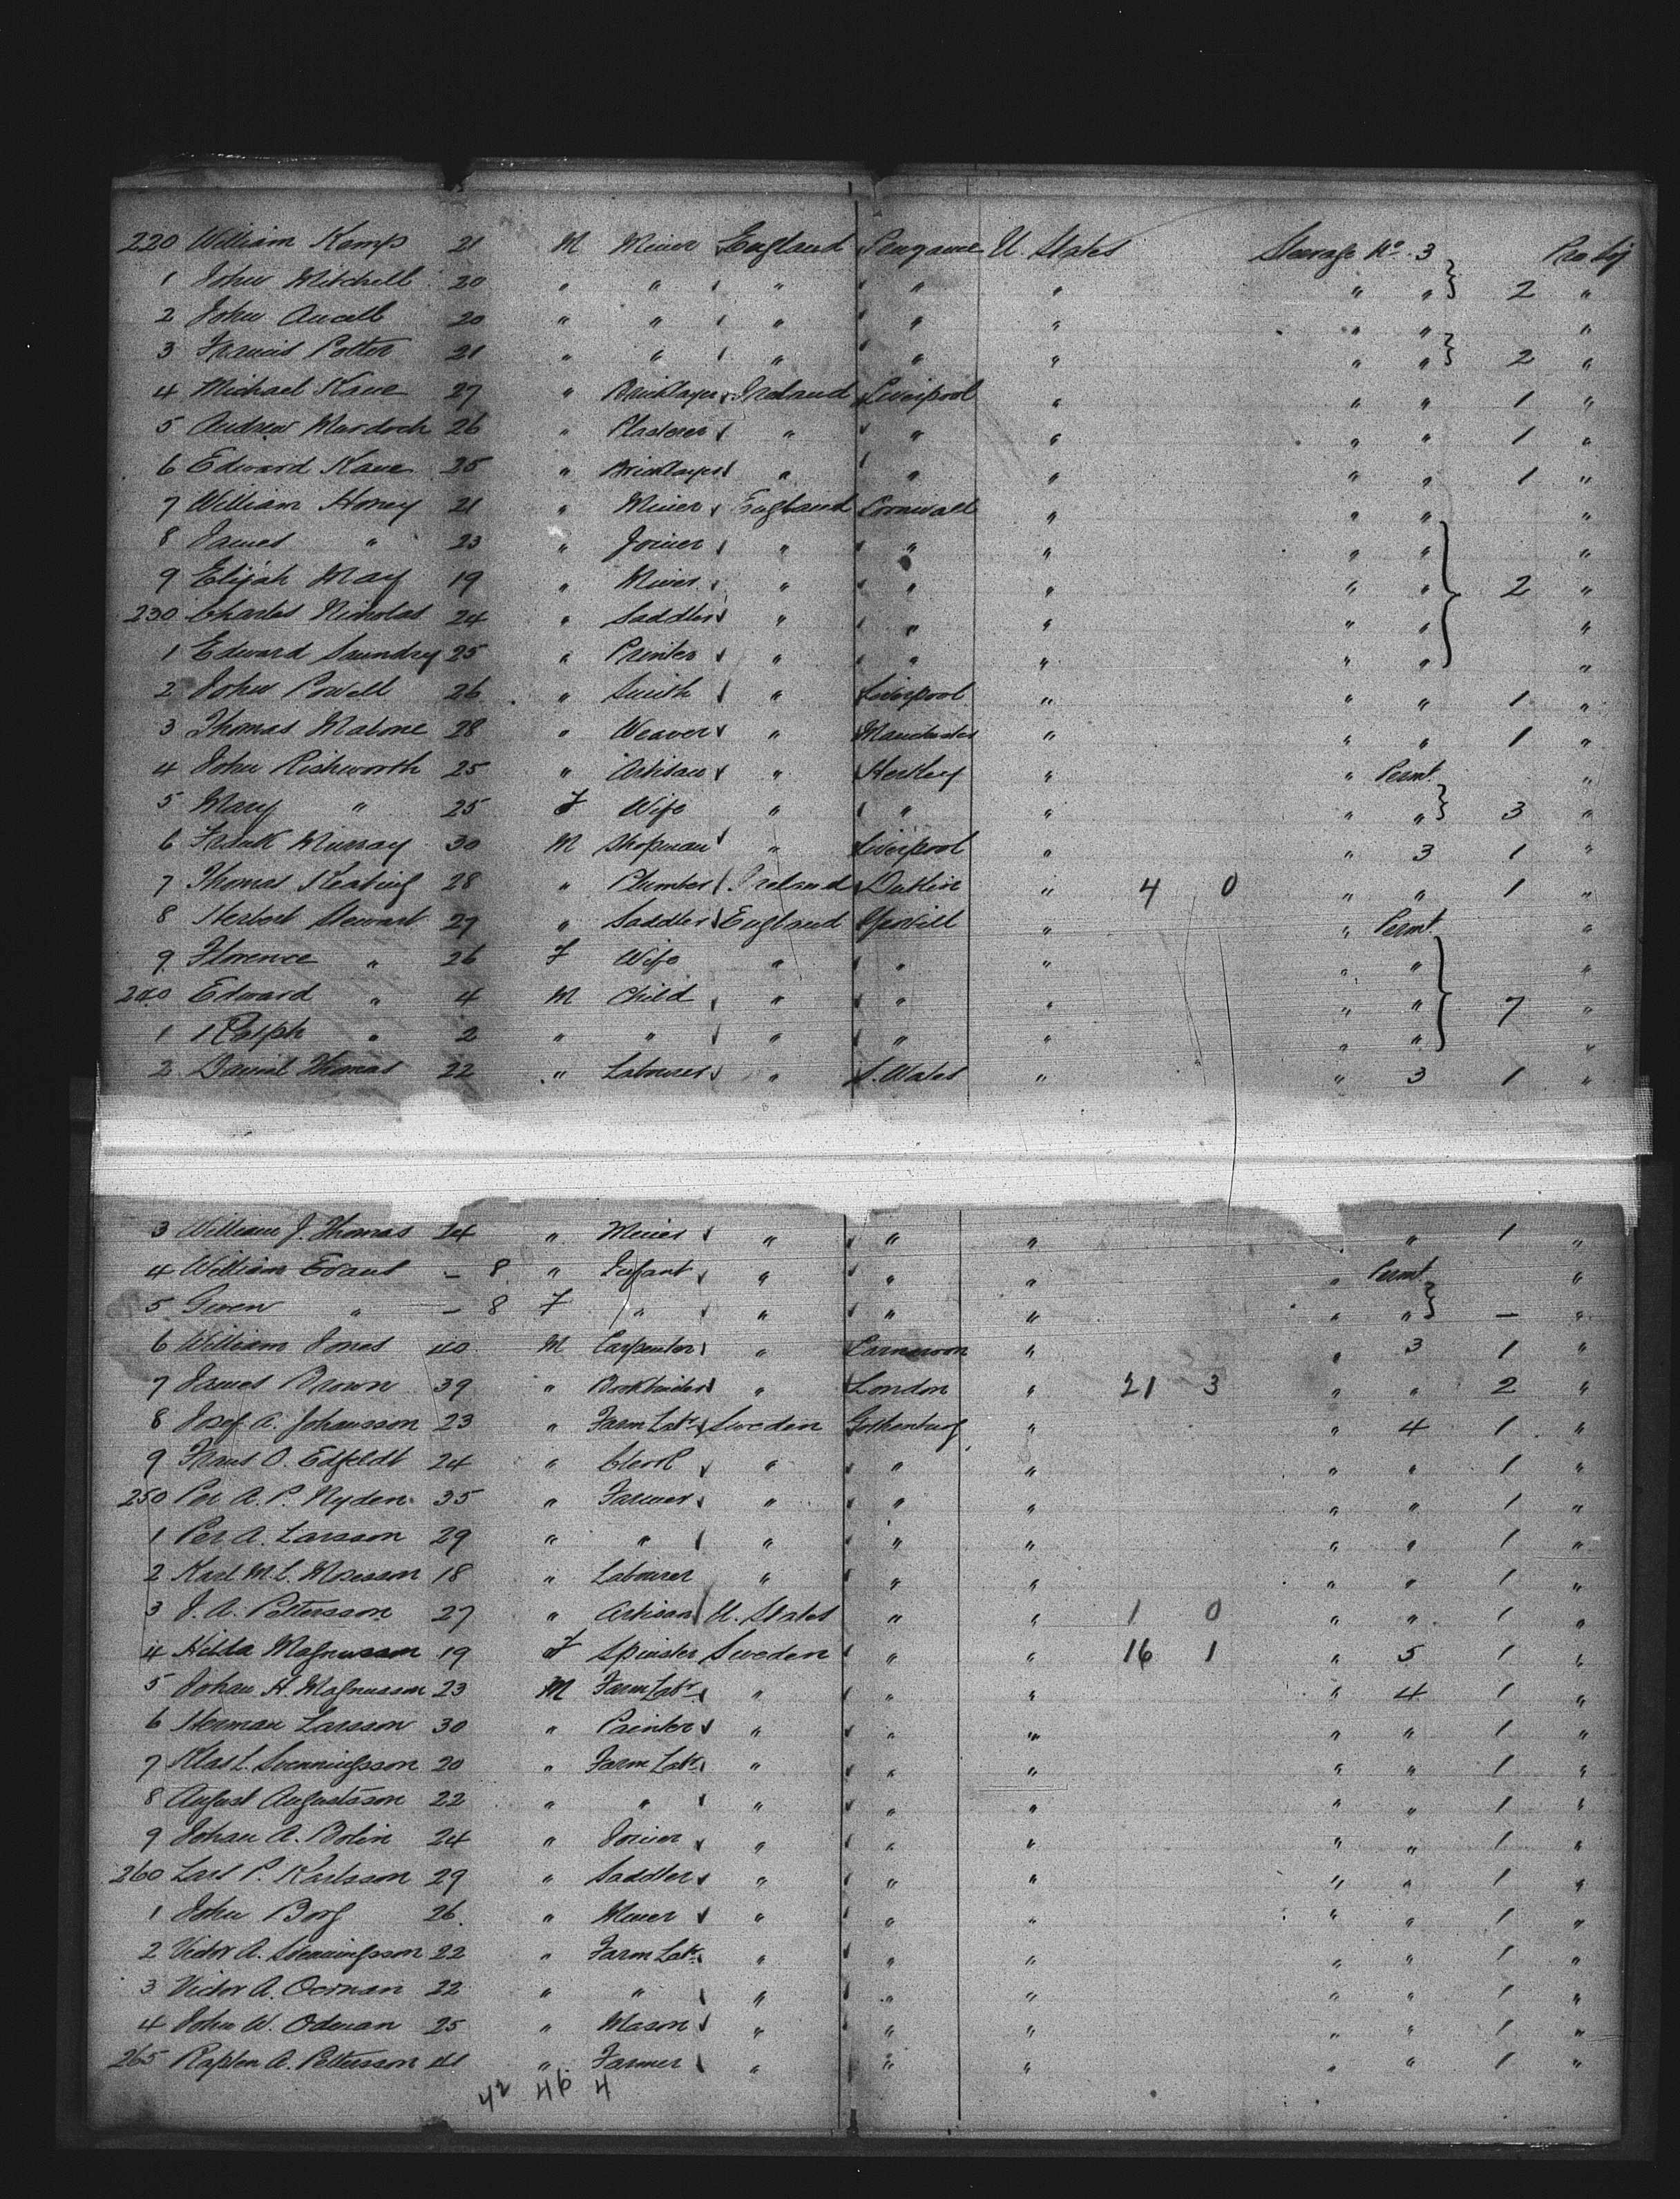 220 William Kemp 21 M Miner England Penzance U. States Steerage No. 3
1 John Mitchell 20 " " " " " " " 2 "
2 John Ancell 20 " " " " " " " "
3 Francis Potter 21 " " " " " " " 2 "
4 Michael Kane 27 " Bricklayer Ireland Liverpool " " " 1 "
5 Andrew Murdoch 26 " Plasterer " " " " " 1 "
6 Edward Kane 25 " Bricklayer " " " " " 1 "
7 William Honey 21 " Miner England Cornwall " " " "
8 James " 23 " Joiner " " " " " "
9 Elijah May 19 " Miner " " " " " 2 "
230 Charles Nicholas 24 " Saddler " " " " " "
1 Edward Saundry 25 " Printer " " " " " "
2 John Powell 26 " Smith " Liverpool " " " 1 "
3 Thomas Malone 28 " Weaver " Manchester " " " 1 "
4 John Rishworth 25 " Artisan " " " Permt. "
5 Mary " 25 F Wife " " " " " 3 "
6 Frank Murray 30 M Shopman " Liverpool " " 3 1 "
7 Thomas Keating 28 " Plumber Ireland Dublin " 4 0 " " 1 "
8 Herbert Stewart 27 " Saddler England " " Permt. "
9 Florence " 26 F Wife " " " " " "
240 Edward " 4 M Child " " " " " 7 "
1 Ralph " 2 " " " " " " " "
2 Daniel Thomas 22 " Labourer " S. Wales " " 3 1 "
3 William J. Thomas 24 " Miner " " " " 1 "
4 William Evans - 8 " Infant " " " " Permt. "
5 Gwen " - 8 F " " " " " " - "
6 William Jones 40 M Carpenter " Carnarvon " " 3 1 "
7 James Brown 39 " Bookbinder " London " 21 3 " " 2 "
8 Josef A. Johansson 23 " Farm Labr. Sweden Gothenburg " " 4 1 "
9 Frans O. Edfeldt 24 " Clerk " " " " " 1 "
250 Per A. P. Nyden 35 " Farmer " " " " " 1 "
1 Per A. Larsson 29 " " " " " " " 1 "
2 Karl M. L. Moesson 18 " Labourer " " " " " 1 "
3 J. A. Pettersson 27 " Artisan U. States " " 1 0 " " 1 "
4 Hilda Magnusson 19 F Spinster Sweden " " 16 1 " 5 1 "
5 Johan H. Magnusson 23 M Farm Labr. " " " " 4 1 "
6 Herman Larsson 30 " Painter " " " " " 1 "
7 Klas L. Svenningsson 20 " Farm Labr. " " " " " 1 "
8 August Augustsson 22 " " " " " " " 1 "
9 Johan A. Bolin 24 " Joiner " " " " " 1 "
260 Lars P. Karlsson 29 " Saddler " " " " " 1 "
1 John Borg 26 " Miner " " " " " 1 "
2 Victor A. Svenningsson 22 " Farm Labr. " " " " " 1 "
3 Victor A. 22 " " " " " " " 1 "
4 John W. Odman 25 " Mason " " " " " 1 "
265 A. Pettersson 41 " Farmer " " " " " 1 "
42 46 4